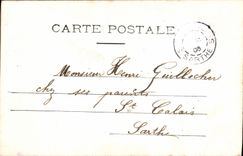 CARTE POSTALE
Monsieur Henri Guillocher
chez ses parents
St Calais
Sarthe